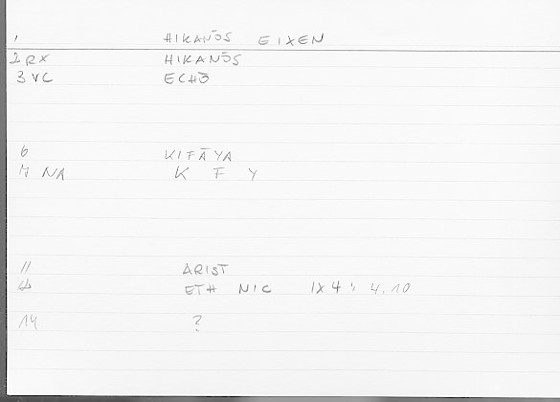 1 HIKANŌS EIXEN
2 RX HIKANŌS
3 VC ECHŌ
6 KIFĀYA
7 NA K F Y
11 ARIST
ETH NIC IX 4 : 4.10
14 ?